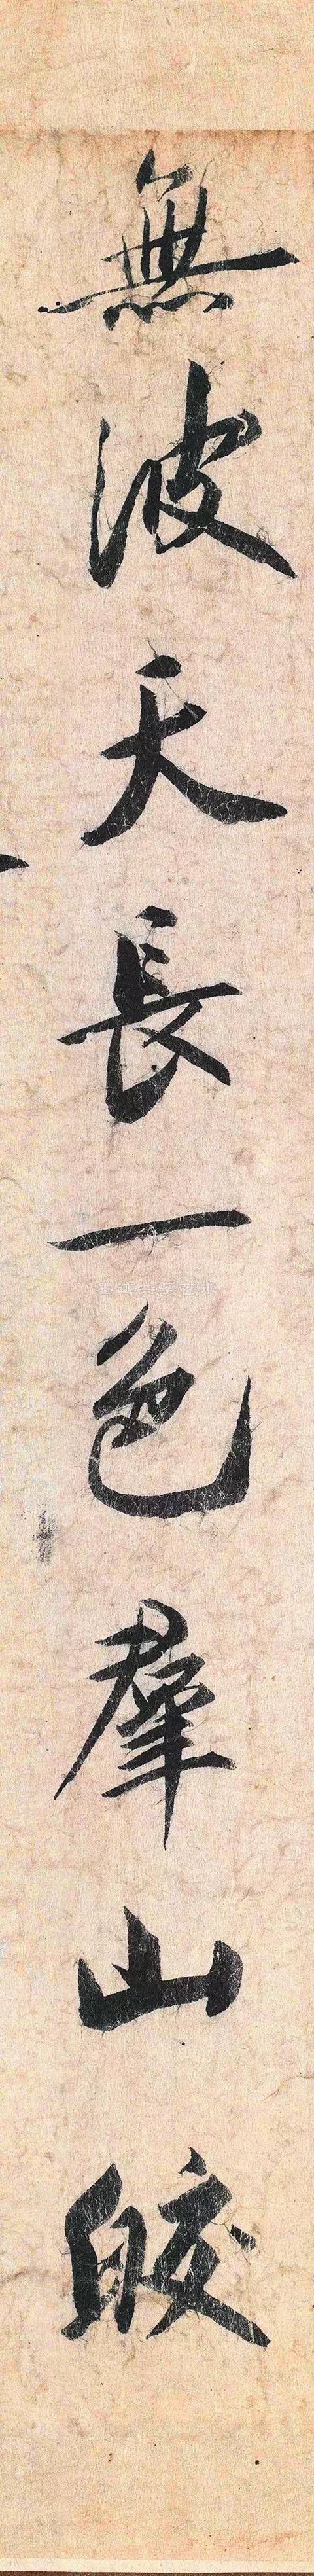 無波天長一色群山皎